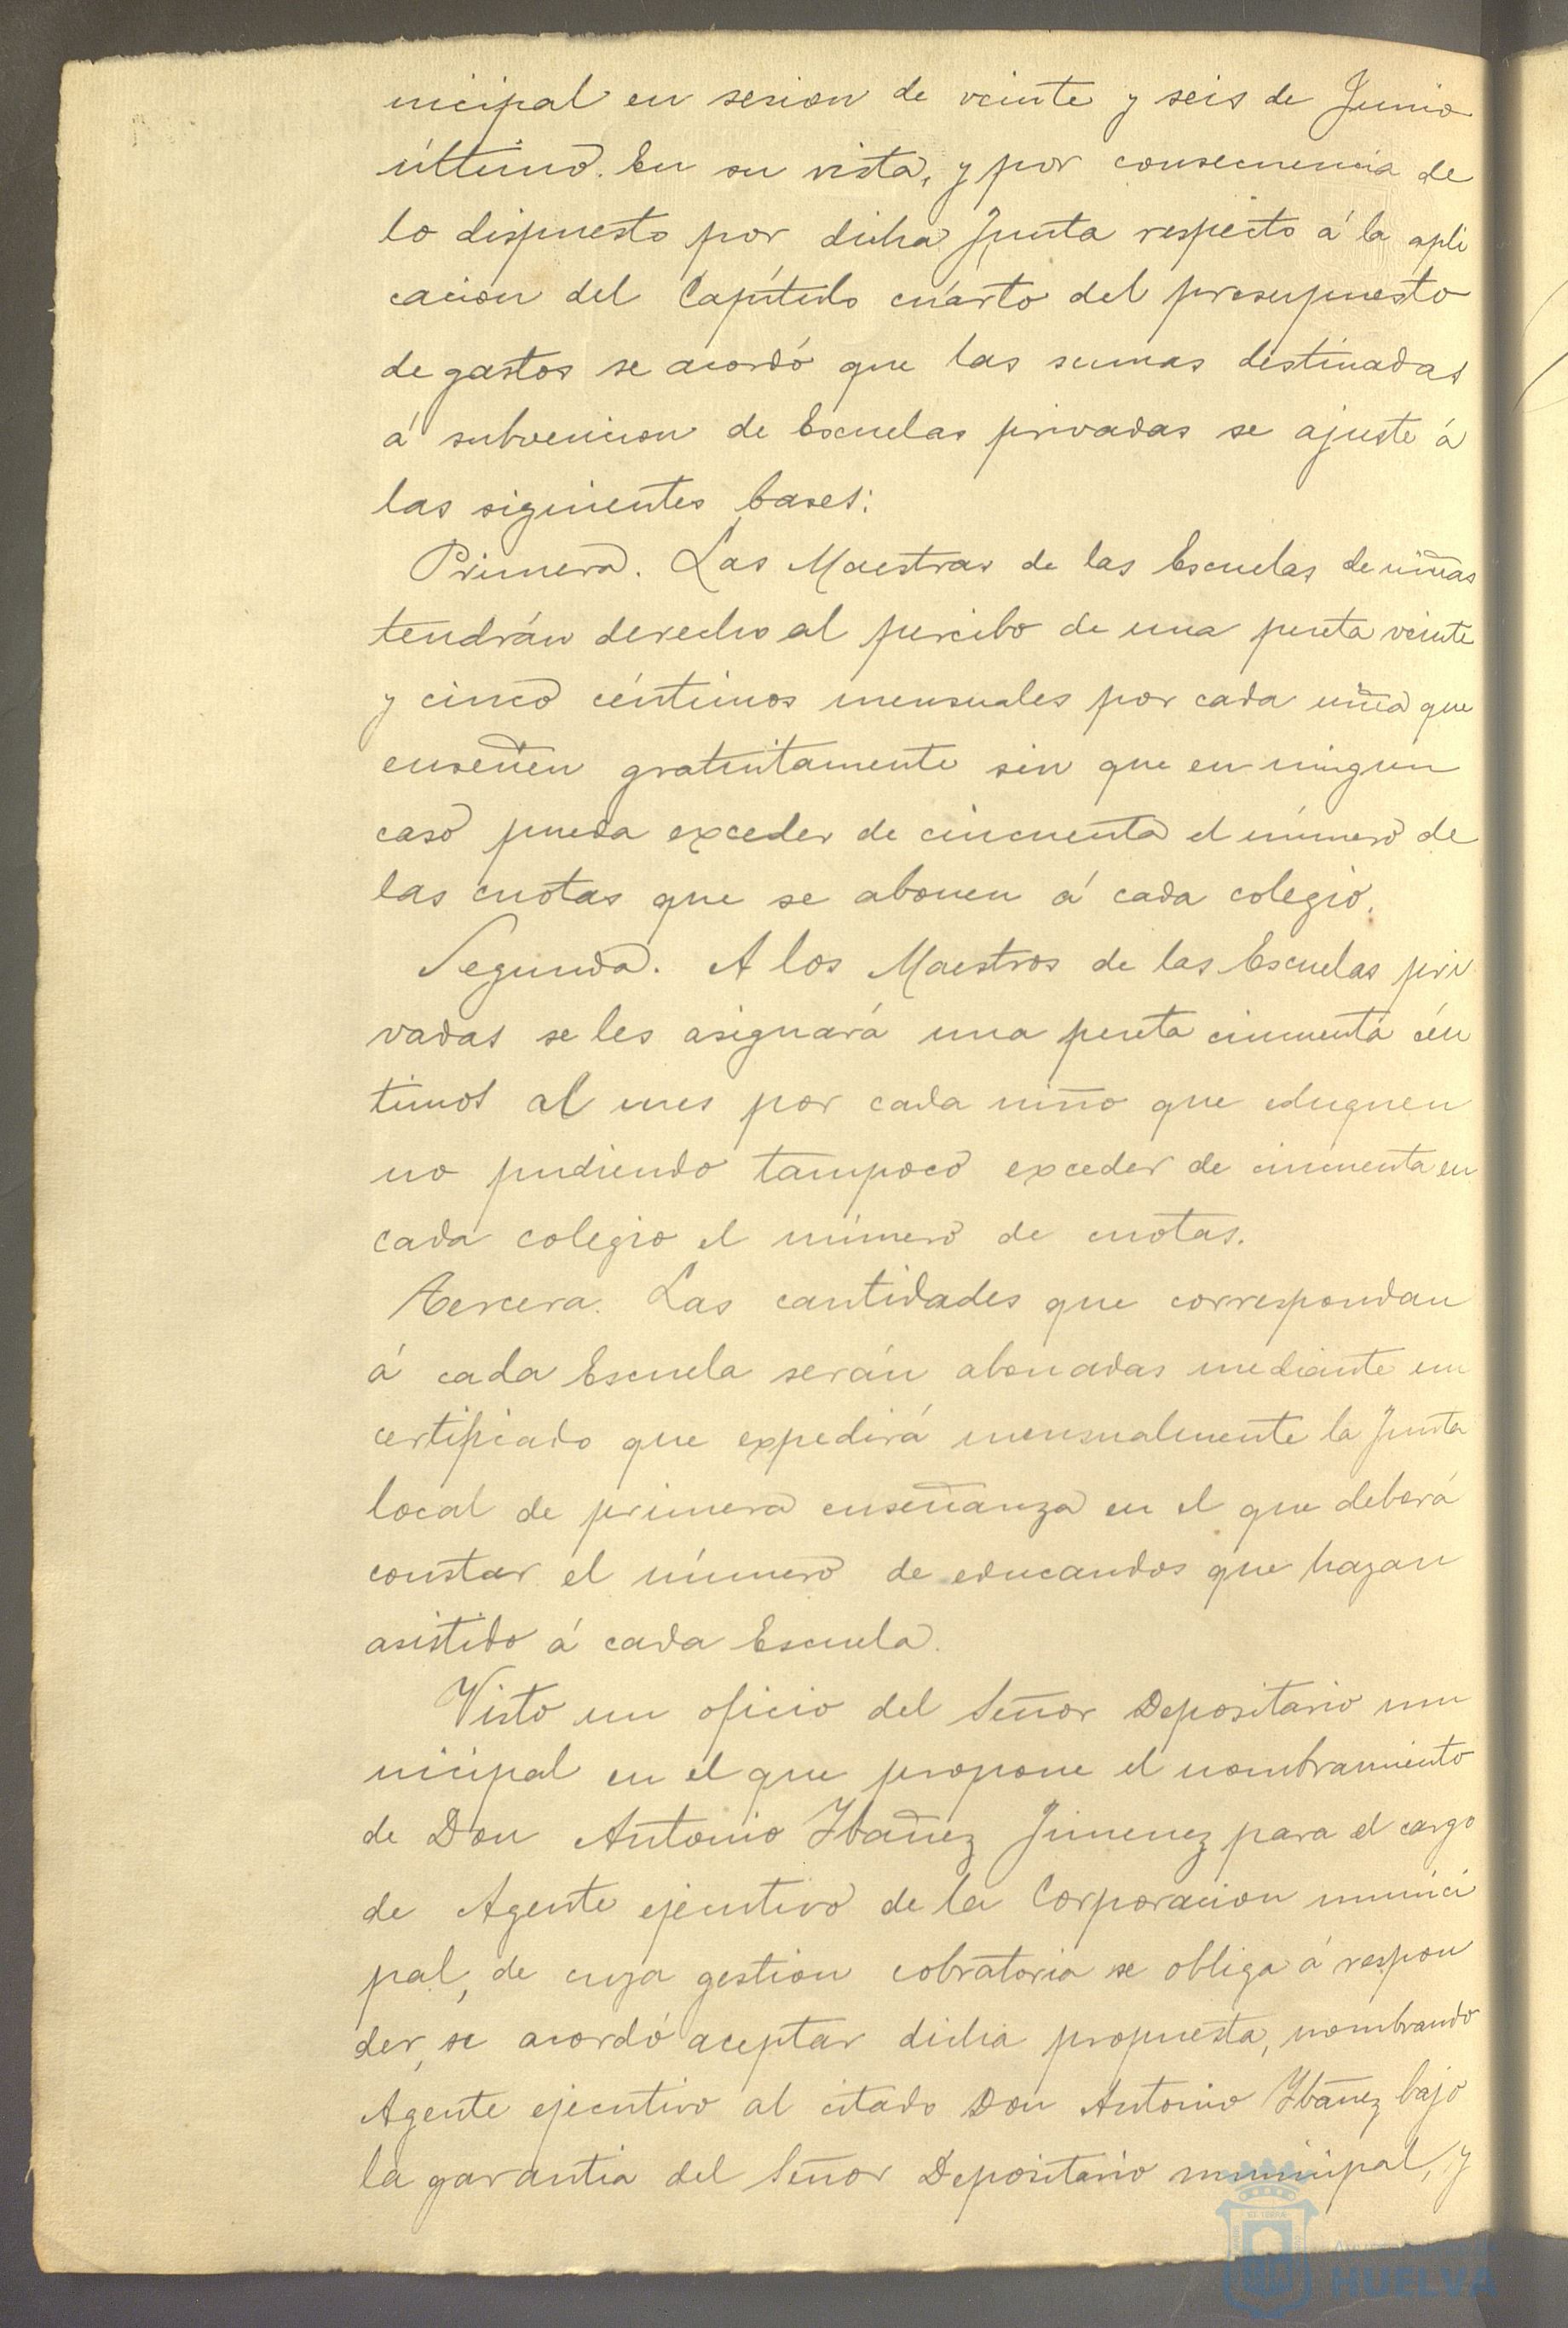 nicipal en sesion de veinte y seis de Junio
último. En su vista, y por consecuencia de
lo dispuesto por dicha Junta respecto á la apli
cacion del Capítulo cuarto del presupuesto
de gastos se acordó que las sumas destinadas
á subvencion de Escuelas privadas se ajuste á
las siguientes bases:
Primera. Las Maestras de las Escuelas de niñas
tendrán derecho al percibo de una peseta veinte
y cinco céntimos mensuales por cada niña que
enseñen gratuitamente sin que en ningun
caso pueda exceder de cincuenta el número de
las cuotas que se abonen á cada colegio.
Segunda. A los Maestros de las Escuelas pri
vadas se les asignará una peseta cincuenta cén
timos al mes por cada niño que eduquen
no pudiendo tampoco exceder de cincuenta en
cada colegio el número de cuotas.
Tercera. Las cantidades que correspondan
á cada Escuela serán abonadas mediante un
certificado que expedirá mensualmente la Junta
local de primera enseñanza en el que deberá
constar el número de educandos que hayan
asistido á cada Escuela.
Visto un oficio del Señor Depositario mu
nicipal en el que propone el nombramiento
de Don Antonio Ybañez Jimenez para el cargo
de Agente ejecutivo de la Corporacion munici
pal, de cuya gestion cobratoria se obliga á respon
der, se acordó aceptar dicha propuesta, nombrando
Agente ejecutivo al citado Don Antonio Ybañez bajo
la garantia del Señor Depositario municipal, y
HUELVA